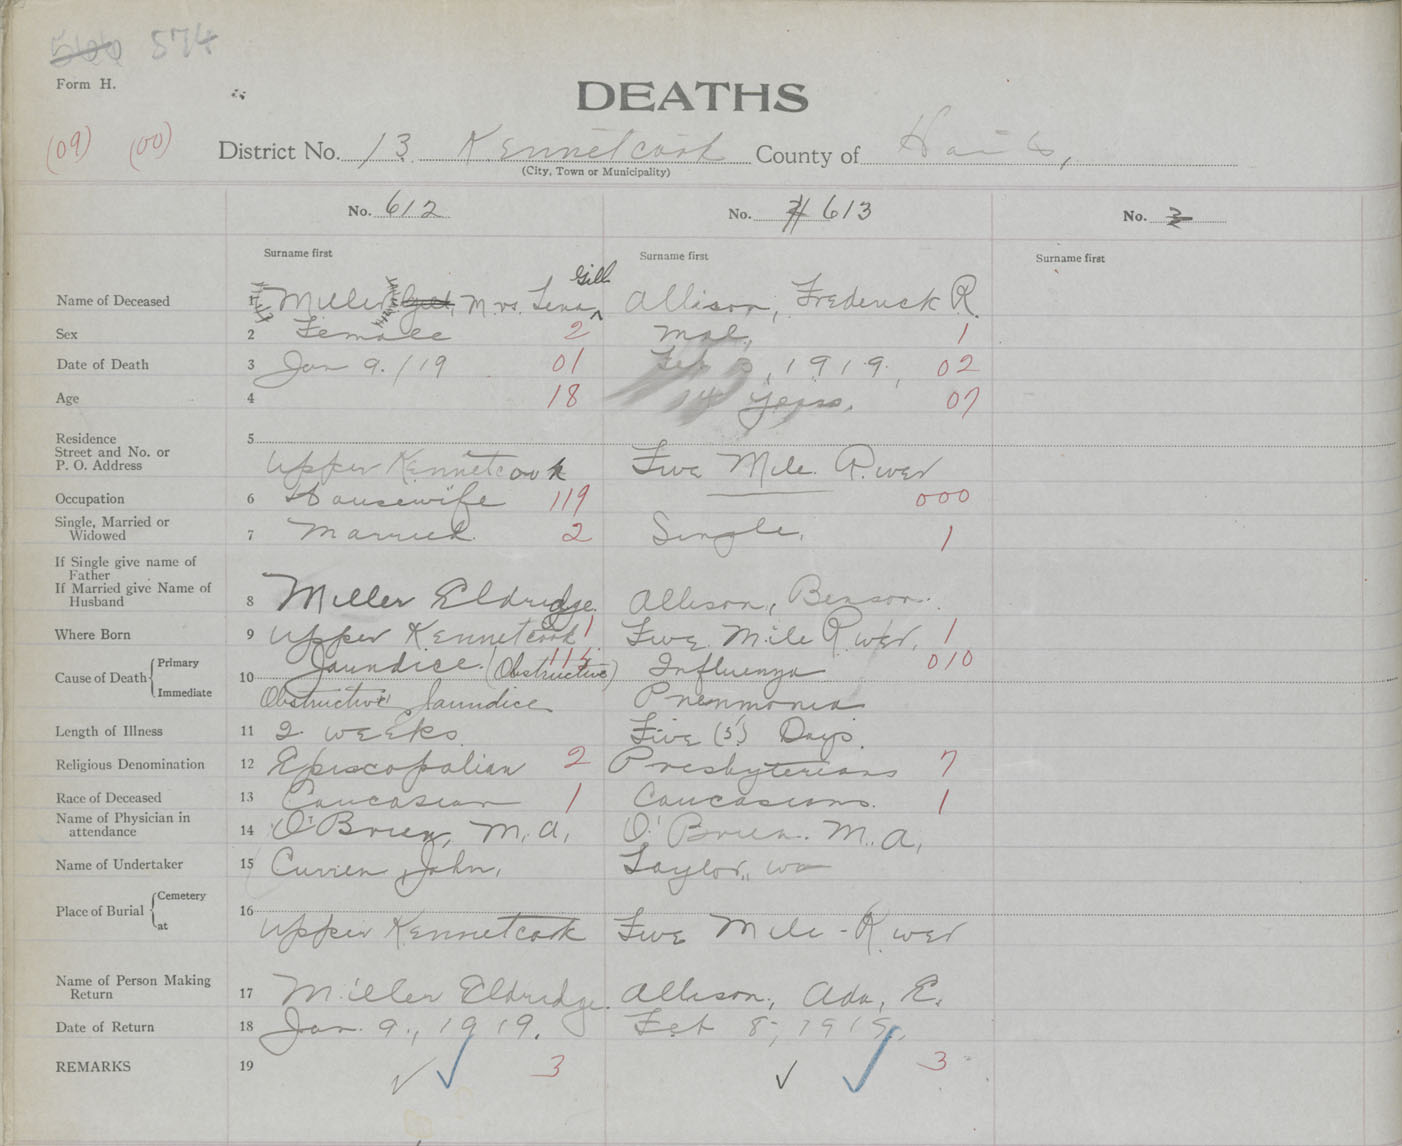 574
Form H.
DEATHS
(09) (00) District No. 13 Kennetcook County of Hants,
(City, Town or Municipality)
No. 612 No. 613 No. 3
Surname first Surname first Surname first
Gill
Name of Deceased 1 Miller Mrs. Lena Allison, Frederick R.
Sex 2 Female 2 Mal, 1
Date of Death 3 Jan 9./19 01 Feb , 1919, 02
Age 4 18 14 years. 07
Residence 5
Street and No. or
P. O. Address Upper Kennetcook Five Mile River
Occupation 6 Housewife 119 000
Single, Married or
Widowed 7 Married. 2 Single, 1
If Single give name of
Father
If Married give Name of
Husband 8 Miller Eldridge. Allison, Benson.
Where Born 9 Upper Kennetcook 1 Five Mile River, 1
Cause of Death Primary 10 Jaundice (Obstructive) 115 Influenza 010
Immediate Obstructive Jaundice Pneumonia
Length of Illness 11 2 weeks. Five (5) Days.
Religious Denomination 12 Episcopalian 2 Presbyterians 7
Race of Deceased 13 Caucasian 1 Caucasians. 1
Name of Physician in
attendance 14 O'Brien, M. A, O'Brien. M. A,
Name of Undertaker 15 Currien, John, Taylor, Wm
Place of Burial Cemetery 16
at Upper Kennetcook Five Mile - River
Name of Person Making
Return 17 Miller Eldridge. Allison, Ada, E.
Date of Return 18 Jan. 9., 1919. Feb 8, 1919,
REMARKS 19 3 3